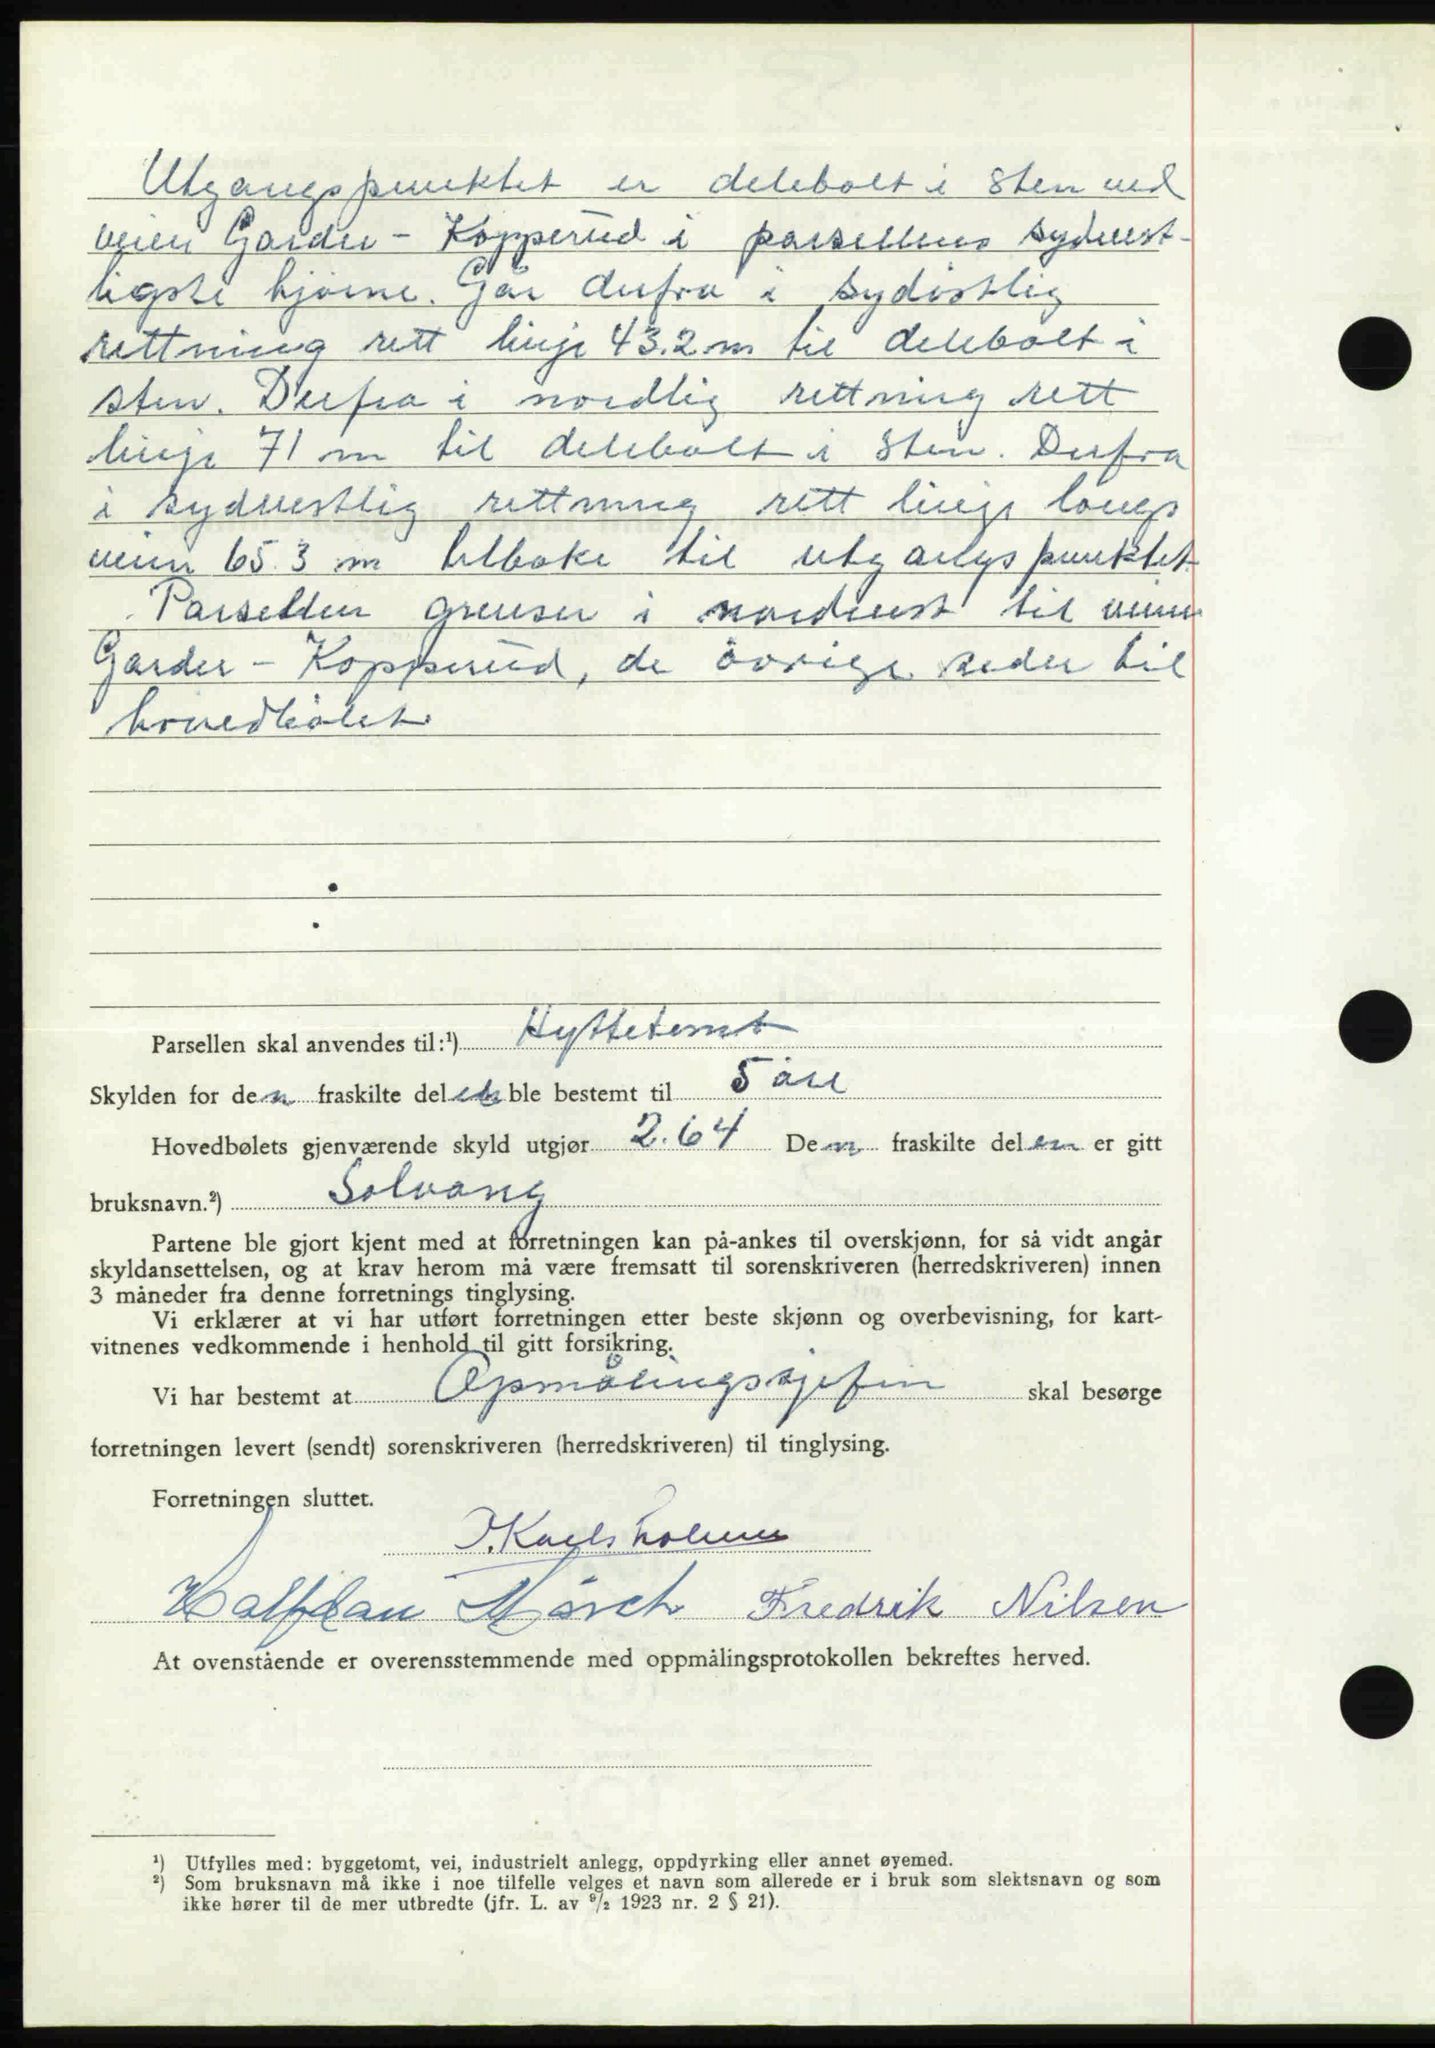 Utgangspunktet er delebolt i sten ved
veien Garder - Kopperud i parsellens sydvest-
ligste hjørne. Går derfra i sydöstlig
rettning rett linje 43.2 m til delebolt i
sten. Derfra i nordlig rettning rett
linje 71 m til delebolt i sten. Derfra
i sydvestlig rettning rett linje langs
veien 65.3 m tilbake til utgangspunktet.
Parsellen grenser i nordvest til veien
Garder - Kopperud, de övrige sider til
hovedbölet.
Parsellen skal anvendes til:¹) Hyttetomt
Skylden for den fraskilte delen ble bestemt til 5 öre
Hovedbølets gjenværende skyld utgjør 2.64 Den fraskilte delen er gitt
bruksnavn.²) Solvang
Partene ble gjort kjent med at forretningen kan på-ankes til overskjønn, for så vidt angår
skyldansettelsen, og at krav herom må være fremsatt til sorenskriveren (herredskriveren) innen
3 måneder fra denne forretnings tinglysing.
Vi erklærer at vi har utført forretningen etter beste skjønn og overbevisning, for kart-
vitnenes vedkommende i henhold til gitt forsikring.
Vi har bestemt at Opmålingssjefen skal besørge
forretningen levert (sendt) sorenskriveren (herredskriveren) til tinglysing.
Forretningen sluttet.
J. Karlsholmen
Halfdan Mörch Fredrik Nilsen
At ovenstående er overensstemmende med oppmålingsprotokollen bekreftes herved.
¹) Utfylles med: byggetomt, vei, industrielt anlegg, oppdyrking eller annet øyemed.
²) Som bruksnavn må ikke i noe tilfelle velges et navn som allerede er i bruk som slektsnavn og som
ikke hører til de mer utbredte (jfr. L. av ⁹/₂ 1923 nr. 2 § 21).